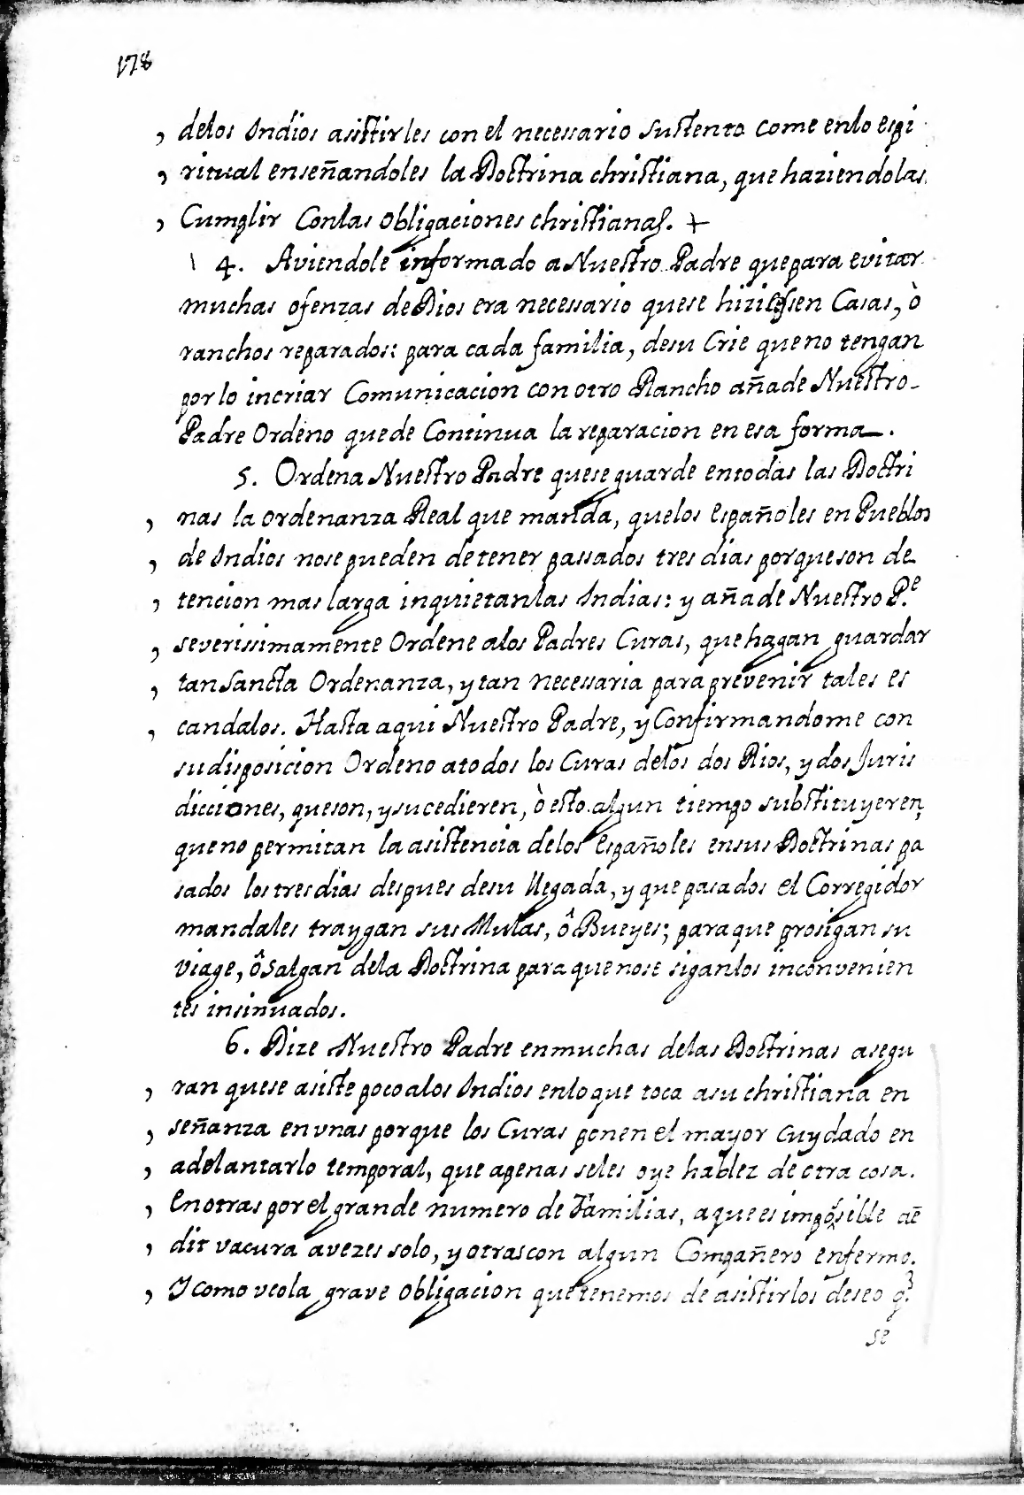 178
, delos Indios asistirles con el necessario sustento come enlo espi
, ritual enseñandoles la Doctrina christiana, que haziendolas
, Cumplir Conlas obligaciones christianas. +
4. Aviendole informado a Nuestro Padre quepara evitar
muchas ofenzas de Dios era necessario quese hiziessen Casas, ò
ranchos reparados: para cada familia, desu Crie queno tengan
por lo incriar Comunicacion con otro Rancho añade Nuestro
Padre Ordeno quede Continua la reparacion en esa forma.
5. Ordena Nuestro Padre quese guarde entodas las Doctri
, nas la ordenanza Real que manda, quelos Españoles en Pueblos
, de Indios nose pueden detener passados tres dias porqueson de
, tencion mas larga inquietanlas Indias: y añade Nuestro P.e
, severissimamente Ordene alos Padres Curas, que hagan guardar
, tan Sancta Ordenanza, y tan necessaria para prevenir tales es
, candalos. Hasta aqui Nuestro Padre, y Confirmandome con
sudisposicion Ordeno atodos los Curas delos dos Rios, y dos Juris
dicciones, queson, y sucedieren, ò esto algun tiempo substituyeren,
queno permitan la asistencia delos Españoles ensus Doctrinas pa
sados los tres dias despues desu llegada, y que pasados el Corregidor
mandales traygan sus Mulas, ô Bueyes; paraque prosigan su
viage, ô Salgan dela Doctrina para que nose siganlos inconvenien
tes insinuados.
6. Dize Nuestro Padre enmuchas delas Doctrinas asegu
, ran quese asiste poco alos Indios enloque toca asu christiana en
, señanza en unas porque los Curas ponen el mayor Cuydado en
, adelantarlo temporal, que apenas seles oye hablez de otra cosa.
, Enotras por el grande numero de Familias, aquees impossible aē
, dir vacura avezes solo, y otrascon algun Compañero enfermo.
, Y como veola grave obligacion quetenemos de asistirlos deseo q.
se